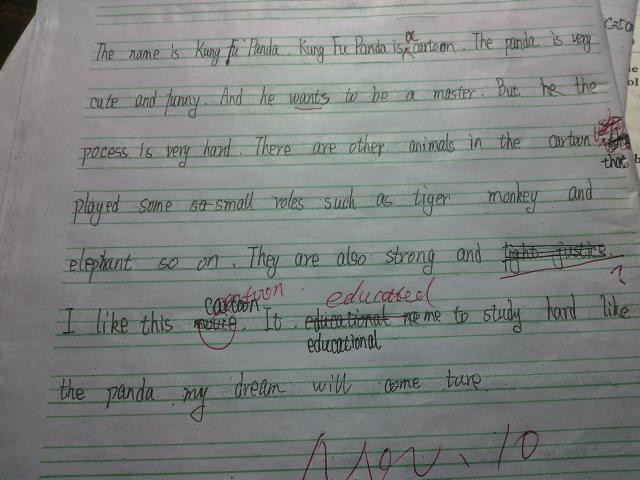 The name is Kung Fu Panda. Kung Fu Panda is a cartoon. The panda is very
cute and funny. And he wants to be a master. But he the
pocess is very hard. There are other animals in the cartoon that
played some so small roles such as tiger monkey and
elephant so on. They are also strong and fight justice.
?
cartoon cartoon educated
I like this movie. It educational me to study hard like
educational
the panda my dream will come ture
Nov. 10